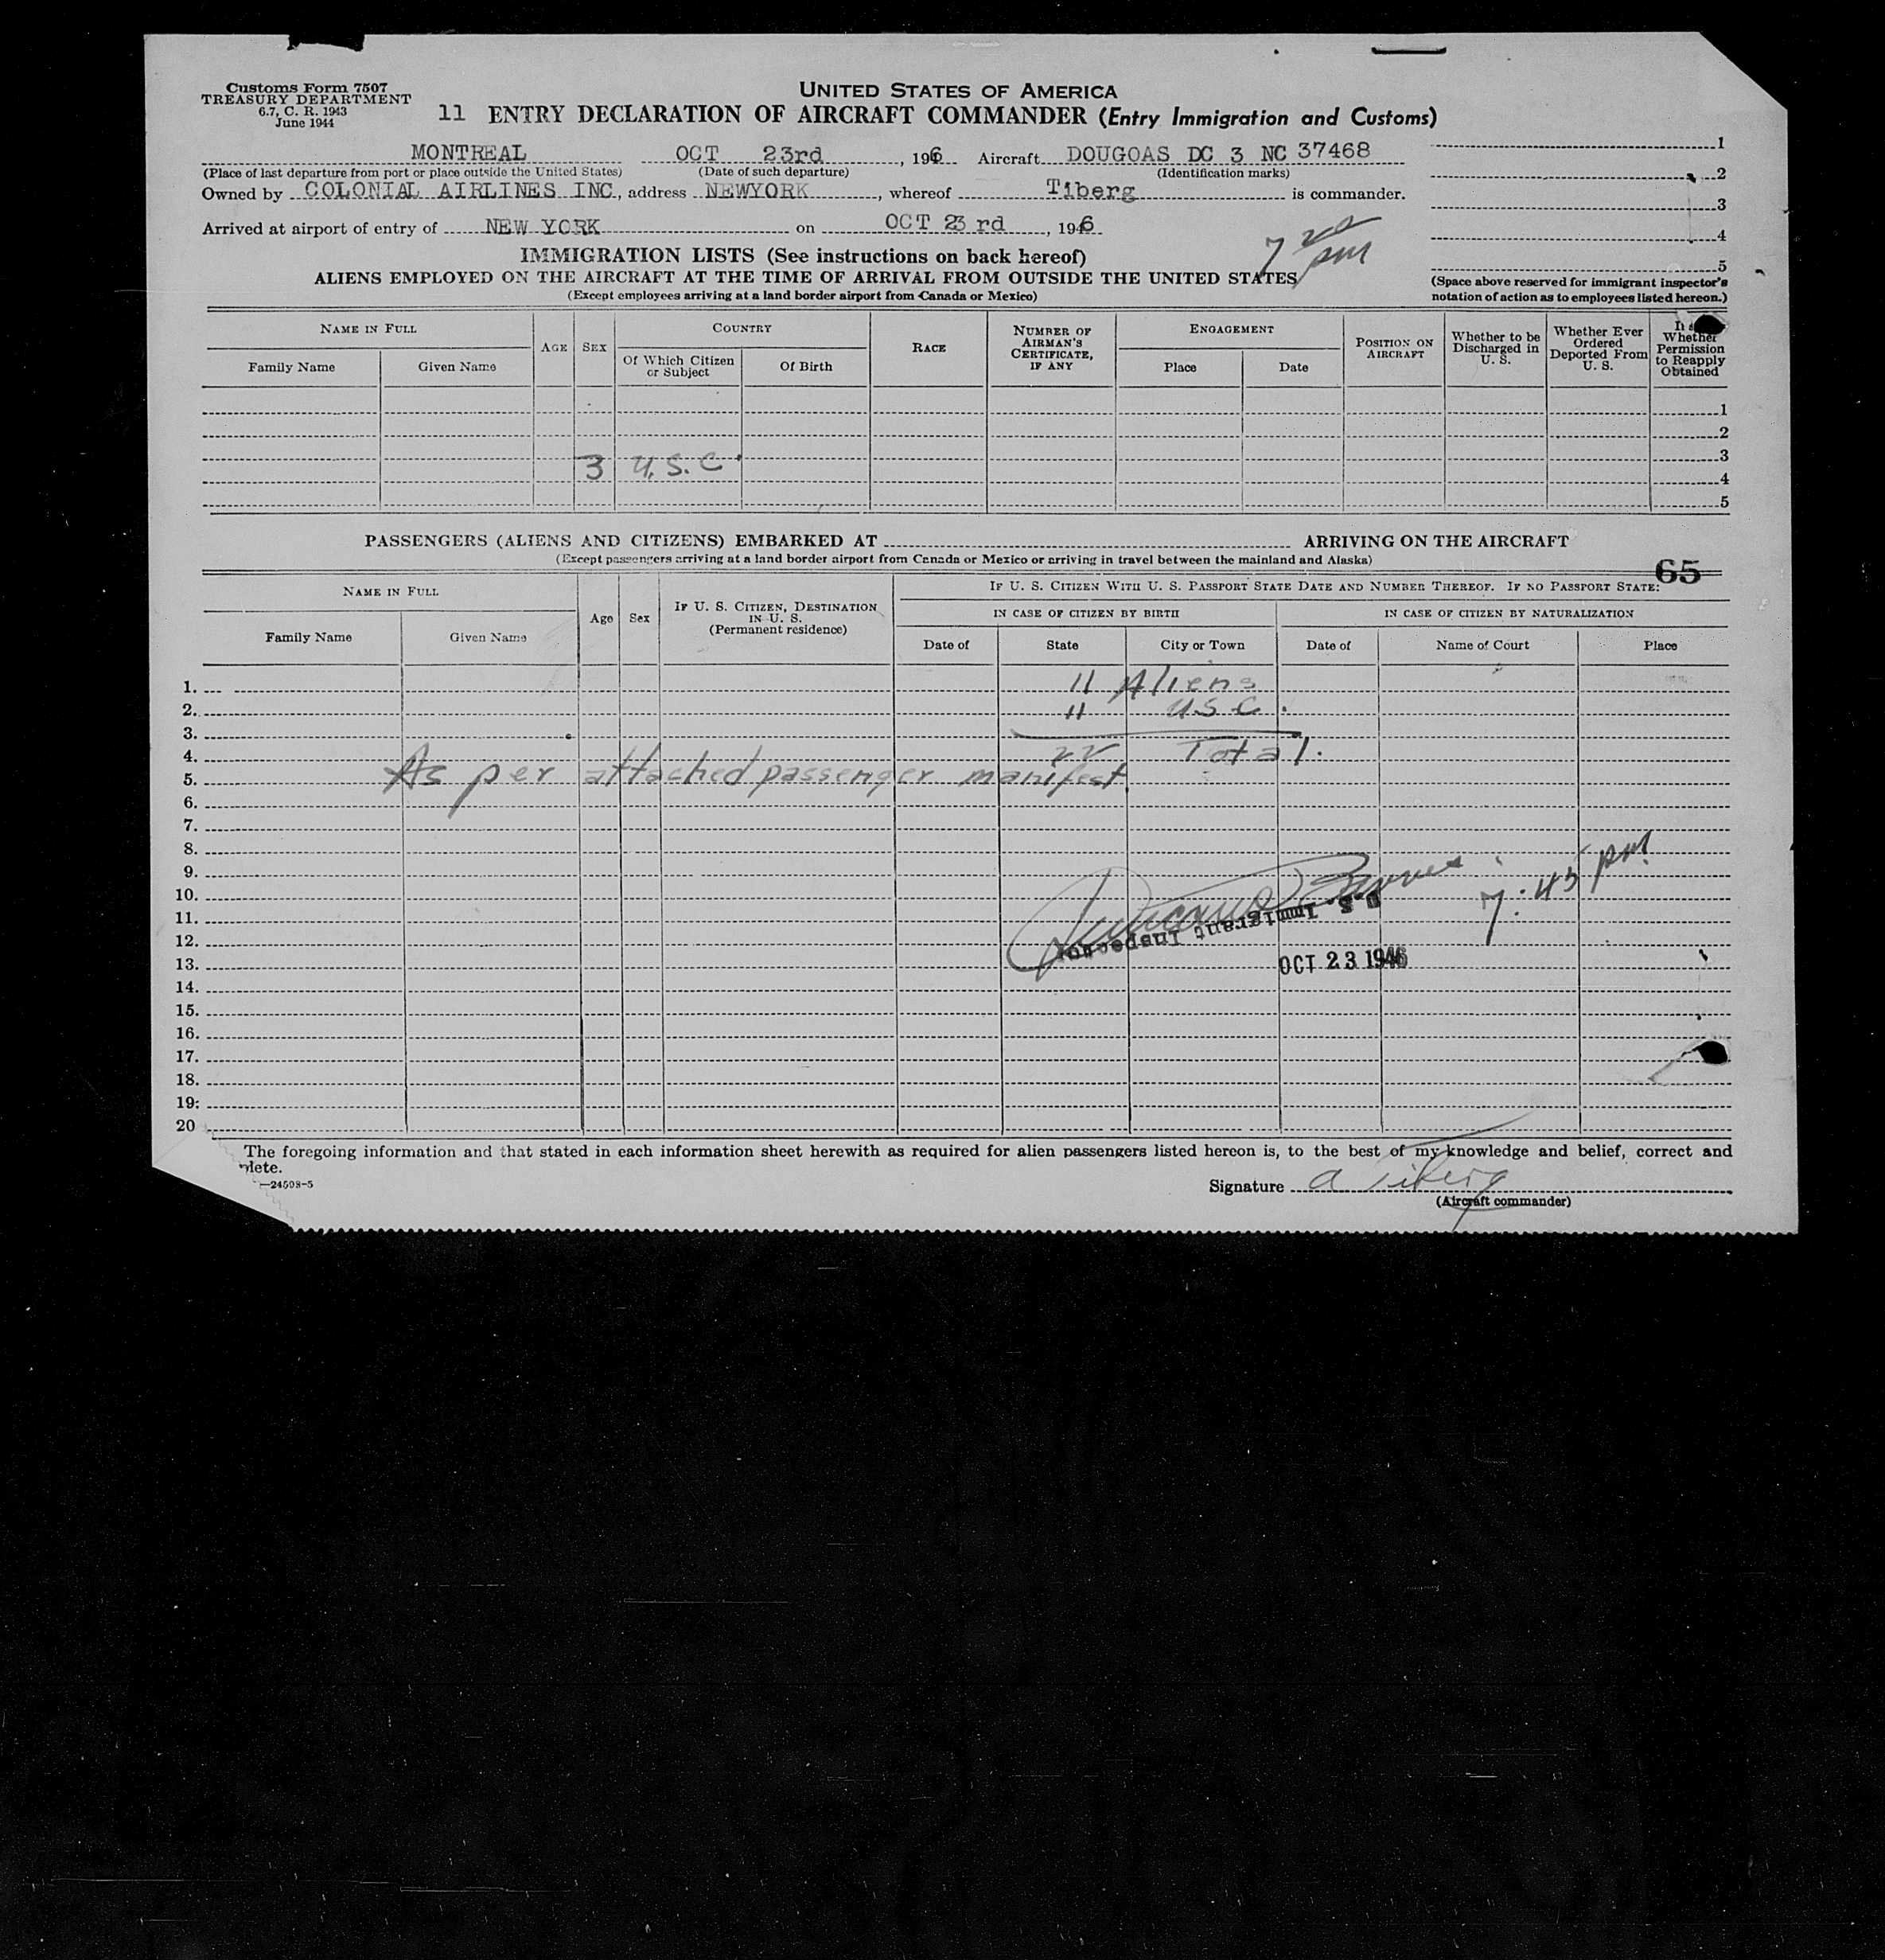 Customs Form 7507
TREASURY DEPARTMENT
6.7, C. R. 1943
June 1944
UNITED STATES OF AMERICA
11 ENTRY DECLARATION OF AIRCRAFT COMMANDER (Entry Immigration and Customs)
MONTREAL OCT 23rd, 1946 Aircraft DOUGOAS DC 3 NC 37468
(Place of last departure from port or place outside the United States) (Date of such departure) (Identification marks)
Owned by COLONIAL AIRLINES INC, address NEWYORK, whereof Tiberg is commander.
Arrived at airport of entry of NEW YORK on OCT 23 rd, 1946
7 20 pm
1
2
3
4
5
(Space above reserved for immigrant inspector's
notation of action as to employees listed hereon.)
IMMIGRATION LISTS (See instructions on back hereof)
ALIENS EMPLOYED ON THE AIRCRAFT AT THE TIME OF ARRIVAL FROM OUTSIDE THE UNITED STATES
(Except employees arriving at a land border airport from Canada or Mexico)
NAME IN FULL
Family Name Given Name
AGE SEX
COUNTRY
Of Which Citizen or Subject Of Birth
RACE
NUMBER OF AIRMAN'S CERTIFICATE, IF ANY
ENGAGEMENT
Place Date
POSITION ON AIRCRAFT
Whether to be Discharged in U. S.
Whether Ever Ordered Deported From U. S.
Whether Permission to Reapply Obtained
1
2
3
3 U.S.C.
4
5
PASSENGERS (ALIENS AND CITIZENS) EMBARKED AT ARRIVING ON THE AIRCRAFT
(Except passengers arriving at a land border airport from Canada or Mexico or arriving in travel between the mainland and Alaska)
65
NAME IN FULL
Family Name Given Name
Age Sex
IF U. S. CITIZEN, DESTINATION IN U. S.
(Permanent residence)
IF U. S. CITIZEN WITH U. S. PASSPORT STATE DATE AND NUMBER THEREOF. IF NO PASSPORT STATE:
IN CASE OF CITIZEN BY BIRTH IN CASE OF CITIZEN BY NATURALIZATION
Date of State City or Town Date of Name of Court Place
1. 11 Aliens
2. 11 USC.
3.
4. 22 Total.
5. As per attached passenger manifest.
6.
7.
8.
9.
10. 7:45 pm
11. U.S. Immigrant Inspector
12.
13. OCT 23 1946
14.
15.
16.
17.
18.
19.
20
The foregoing information and that stated in each information sheet herewith as required for alien passengers listed hereon is, to the best of my knowledge and belief, correct and
plete.
—24598-5
Signature a Tiberg
(Aircraft commander)